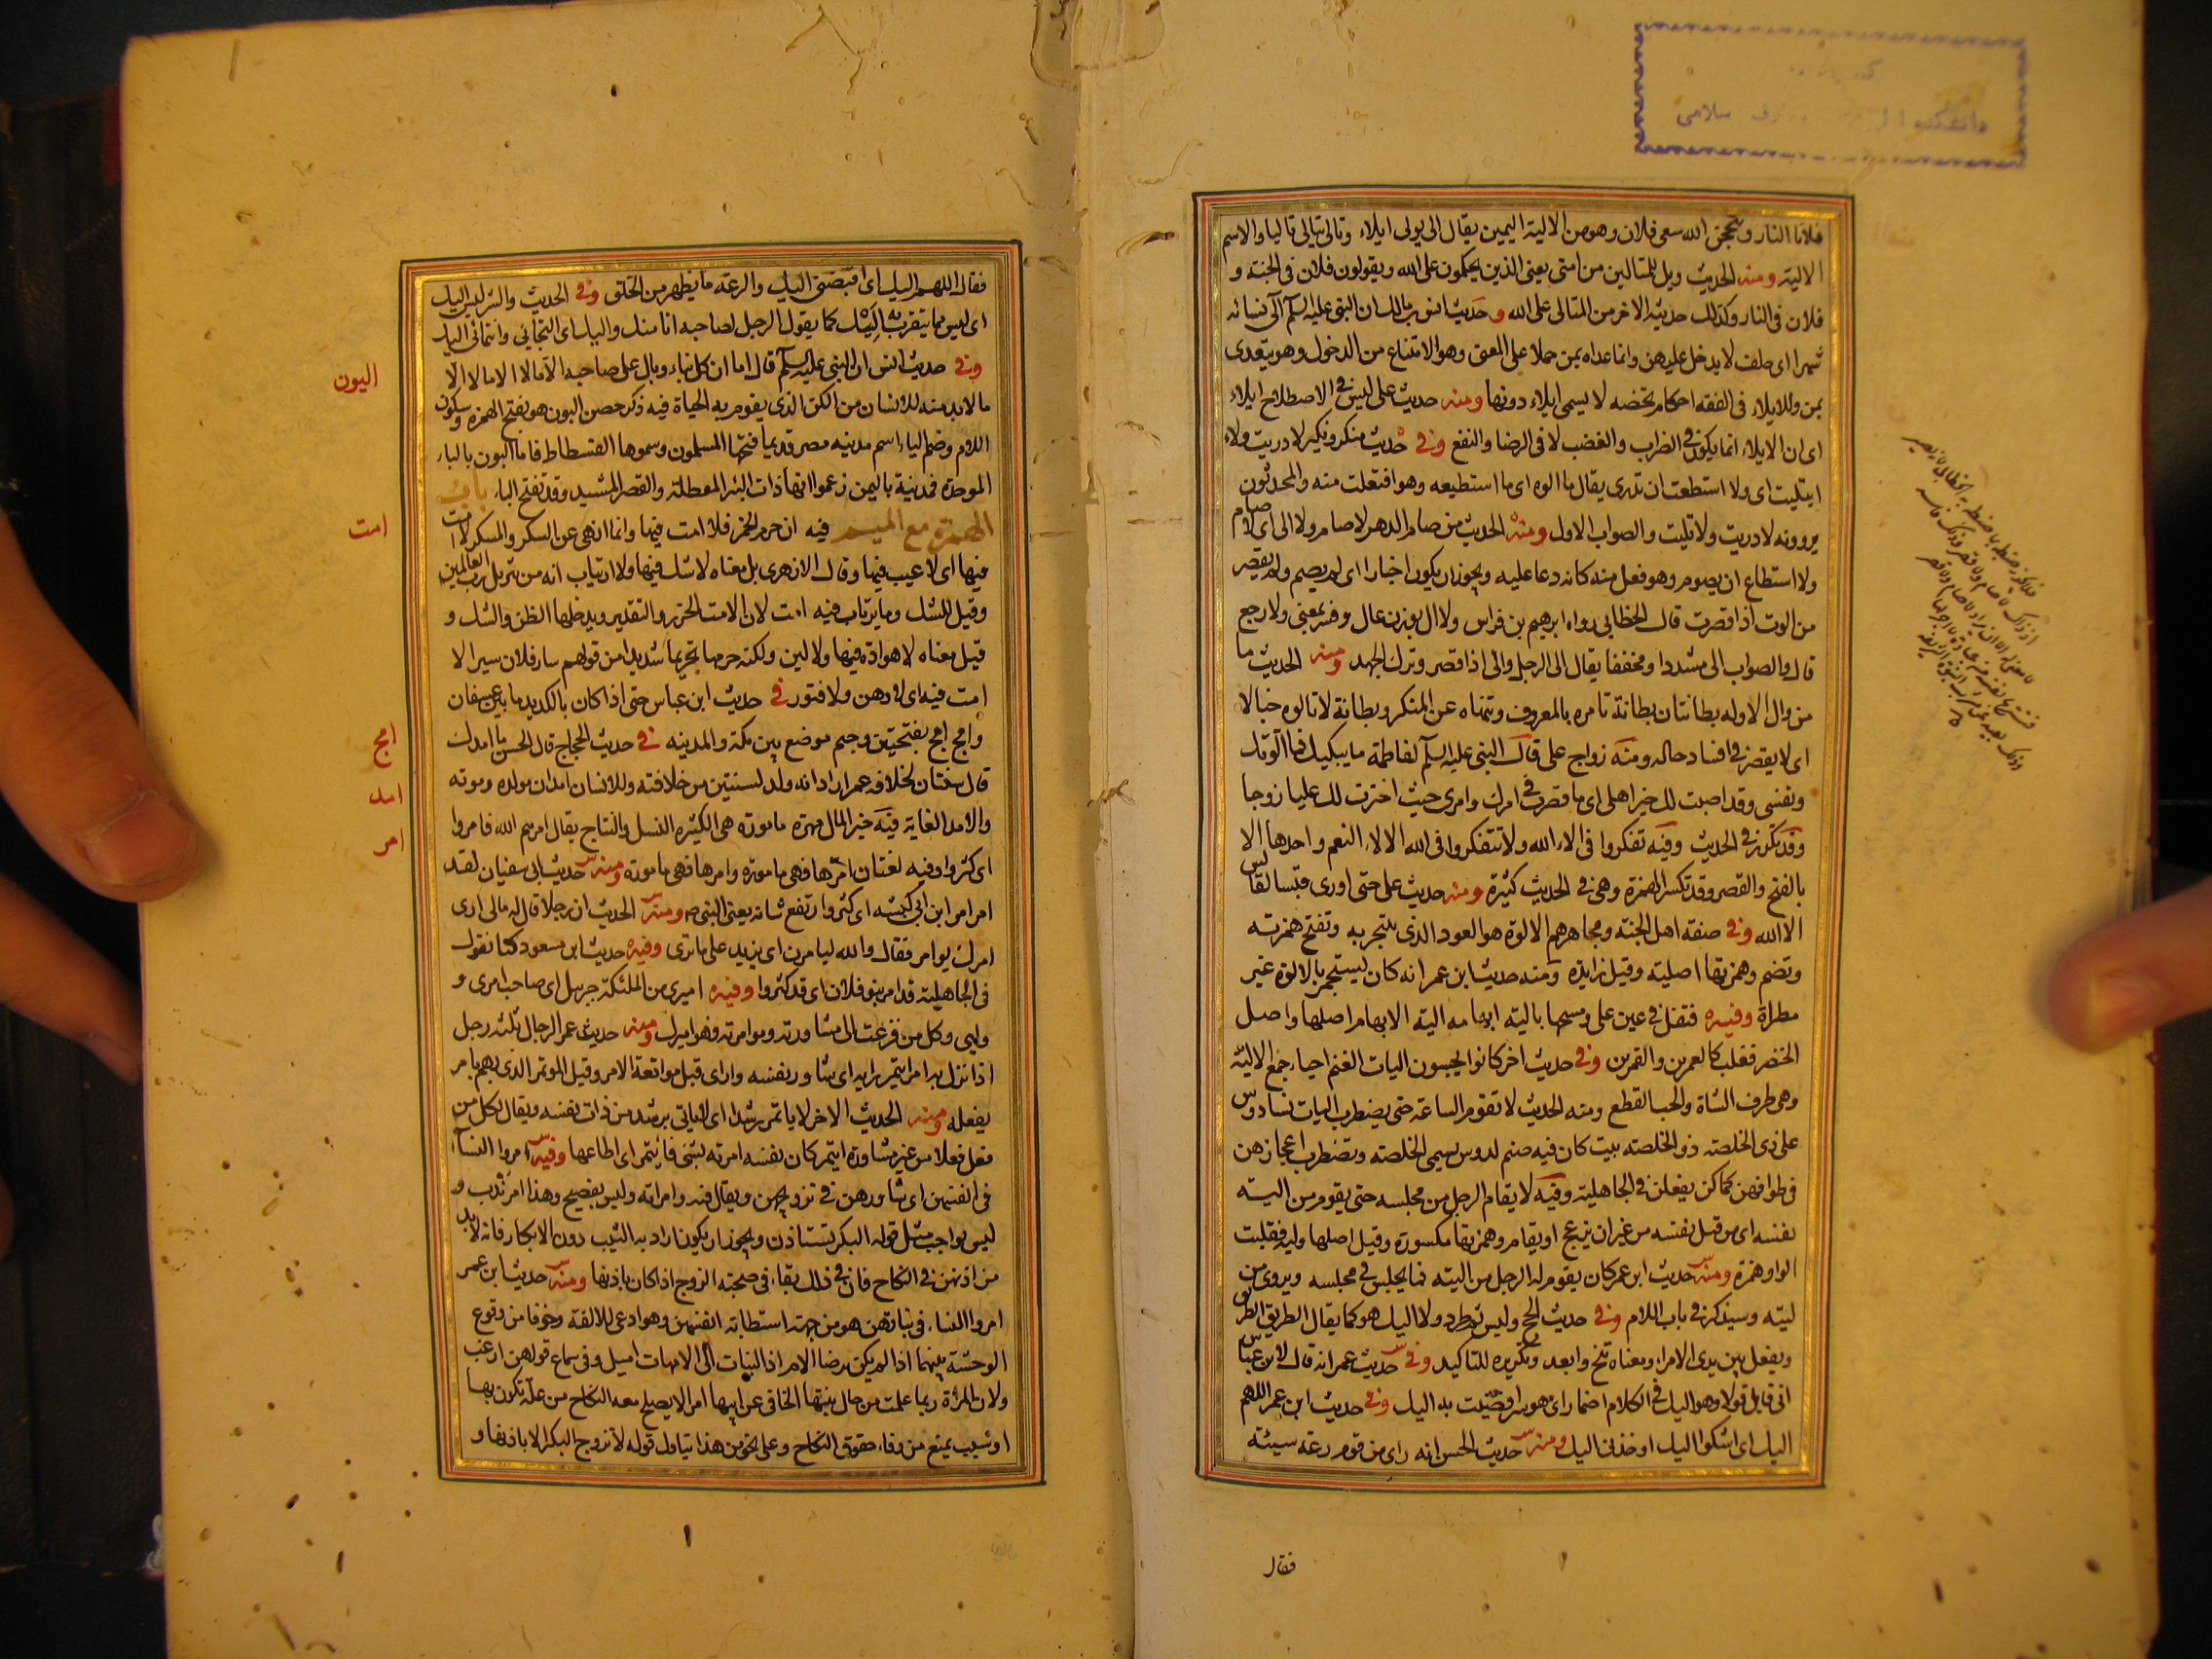 فلانا النار وينجحن الله سعى فلان وهو من الالية اليمين يقال الى يولى ايلاء وتالى يتالى تاليا والاسم
الالية ومنه الحديث ويل للمتالين من امتى يعنى الذين يحكمون على الله ويقولون فلان فى الجنة و
فلان فى النار وكذلك حديثه الاخر من المتالى على الله وحديث انس بن مالك ان النبى عليه السلم آلى من نسائه
شهرا اى حلف لا يدخل عليهن وانما عداه بمن حملا على المعنى وهو الامتناع من الدخول وهو يتعدى
بمن وللايلاء فى الفقه احكام تخصه لا يسمى ايلاء دونها ومنه حديث على ليس فى الاصطلاح ايلاء
اى ان الايلاء انما يكون فى الضراب والغضب لا فى الرضا والنفع وفى حديث منكر ونكير لا دريت ولا
ايتليت اى ولا استطعت ان تدرى يقال ما الوه اى ما استطيعه وهو افتعلت منه والمحدثون
يروونه لا دريت ولا تليت والصواب الاول ومنه الحديث من صام الدهر لا صام ولا الى اى لا صام
ولا استطاع ان يصوم وهو فعل منه كانه دعا عليه ويجوز ان يكون اخبارا اى لم يصم ولم يقصر
من الوت اذا قصرت قال الخطابى رواه ابرهيم بن فراس ولا ال بوزن عال وفسر بمعنى ولا رجع
قال والصواب الى مشددا ومخففا يقال الى الرجل والى اذا قصر وترك الجهد ومنه الحديث ما
من وال الا وله بطانتان بطانة تامره بالمعروف وتنهاه عن المنكر وبطانة لا تالوه خبالا
اى لا يقصر فى افساد حاله ومنه زواج على قال النبى عليه السلم لفاطمة ما يبكيك فما آلوتك
ونفسى وقد اصبت لك خير اهلى اى ما قصرت فى امرك وامرى حيث اخترت لك عليا زوجا
وقد تكرر فى الحديث وفيه تفكروا فى الاء الله ولا تتفكروا فى الله الالاء النعم واحدها الا
بالفتح والقصر وقد تكسر الهمزة وهى فى الحديث كثيرة ومنه حديث على حتى اورى قبسا لقابس
الا الله وفى صفة اهل الجنة ومجامرهم الالوة هو العود الذى يتبخر به وتفتح همزته
وتضم وهمزتها اصلية وقيل زايدة ومنه حديث ابن عمر انه كان يستجمر بالالوة غير
مطراة وفيه فتفل فى عين على ومسحها بالية ابهامه الية الابهام اصلها واصل
الخنصر فغلب كالعمرين والقمرين وفى حديث اخر كانوا يجبون اليات الغنم احياء جمع الالية
وهى طرف الشاة والجب القطع ومنه الحديث لا تقوم الساعة حتى يضطرب اليات نسا دوس
على ذى الخلصة ذو الخلصة بيت كان فيه صنم لدوس يسمى الخلصة وتضطرب اعجازهن
فى طوافهن كما كن يفعلن فى الجاهلية وفيه لا يقام الرجل من مجلسه حتى يقوم من الية
نفسه اى من قبل نفسه من غير ان يزعج او يقام وهمزتها مكسورة وقيل اصلها ولية فقلبت
الواو همزة ومنه حديث ابن عمر كان يقوم له الرجل من الية فما يجلس فى مجلسه ويروى من
ليته وسيذكر فى باب اللام وفى حديث الحج وليس ثم طرد ولا اليك هو كما يقال الطريق الطريق
ويفعل بين يدى الامراء ومعناه تنح وابعد وتكريره للتاكيد وفى حديث عمر انه قال لابن عباس
انى قايل قولا وهو اليك فى الكلام اضمار اى هو سر افضيت به اليك وفى حديث ابن عمر اللهم
اليك اى اشكوا اليك او خذنى اليك ومنه حديث الحسن انه راى من قوم رعة سيئة
فقال
فقال اللهم اليك اى اقبضنى اليك والرعة ما يظهر من الخلق وفى الحديث والشر ليس اليك
اى ليس مما يتقرب به اليك كما يقول الرجل لصاحبه انا منك واليك اى التجائى وانتمائى اليك
وفى حديث انس ان النبى عليه السلم قال اما ان كل بناء وبال على صاحبه الا مالا الا مالا الا
اليون
ما لا بد منه للانسان من الكن الذى يقوم به الحياة فيه ذكر حصن اليون هو بفتح الهمزة وسكون
اللام وضم الياء اسم مدينه مصر قديما فتحها المسلمون وسموها الفسطاط فاما البون بالباء
الموحدة فمدينة باليمن زعموا انها ذات البئر المعطلة والقصر المشيد وقد تفتح الباء باب
الهمزة مع الميم فيه ان حرم الخمر فلا امت فيها وانما انهى عن السكر والمسكر لا امت
امت
فيها اى لا عيب فيها وقال الازهرى بل معناه لا شك فيها ولا ارتياب انه من تنزيل رب العالمين
وقيل للشك وما يرتاب فيه امت لان الامت الحزر والتقدير ويدخلها الظن والشك و
قيل معناه لا هوادة فيها ولا لين ولكنه حرمها تحريما شديدا من قولهم سار فلان سيرا لا
امت فيه اى لا وهن ولا فتور فى حديث ابن عباس حتى اذا كان بالكديد ما بين عسفان
وامج امج بفتحتين وجيم موضع بين مكة والمدينه فى حديث الحجاج قال للحسن ما امدك
امج
قال سنتان لخلافة عمر اراد انه ولد لسنتين من خلافته وللانسان امدان مولده وموته
امد
والامد الغاية فيه خير المال مهرة مامورة هى الكثيرة النسل والنتاج يقال امرهم الله فامروا
امر
اى كثروا وفيه لغتان امرها فهى مامورة وامرها فهى مامورة ومنه حديث ابى سفيان لقد
امر امر ابن ابى كبشه اى كثر وارتفع شانه يعنى النبى ومنه الحديث ان رجلا قال له مالى ارى
امرك يوامر فقال والله ليامرن اى يزيد على ما ترى وفيه حديث ابن مسعود كنا نقول
فى الجاهلية قد امر بنو فلان اى قد كثروا وفيه اميرى من الملئكة جبريل اى صاحب امرى و
وليى وكل من فزعت الى مشاورته وموامرته فهو اميرك ومنه حديث عمر الرجال ثلثه رجل
اذا نزل به امر ائتمر رايه اى شاور نفسه واراى قبل مواقعة الامر وقيل الموتمر الذى يهم بامر
يفعله ومنه الحديث الاخر لا ياتمر رشدا اى لا ياتى برشد من ذات نفسه ويقال لكل من
فعل فعلا من غير مشاورة ايتمر كان نفسه امرته بشى فائتمر اى اطاعها وفيه امروا النساء
فى انفسهن اى شاورهن فى تزويجهن ويقال فيه وامرته وليس بفصيح وهذا امر ندب و
ليس بواجب مثل قوله البكر تستاذن ويجوز ان يكون اراد به الثيب دون الابكار فانه لا بد
من اذنهن فى النكاح فان فى ذلك بقاء فى صحبة الزوج اذا كان باذنها ومنه حديث ابن عمر
امروا النساء فى بناتهن هو من جهة استطابة انفسهن وهو ادعى للالفة وخوفا من وقوع
الوحشة بينهما اذا لم يكن برضا الام اذ البنات الى الامهات اميل وفى سماع قولهن ارغب
ولان المرأة ربما علمت من حال بنتها الخافى عن ابيها امرا لا يصلح معه النكاح من علة تكون بها
او سبب يمنع من وفاء حقوق النكاح وعلى نحو من هذا يتاول قوله لا تزوج البكر الا باذنها و